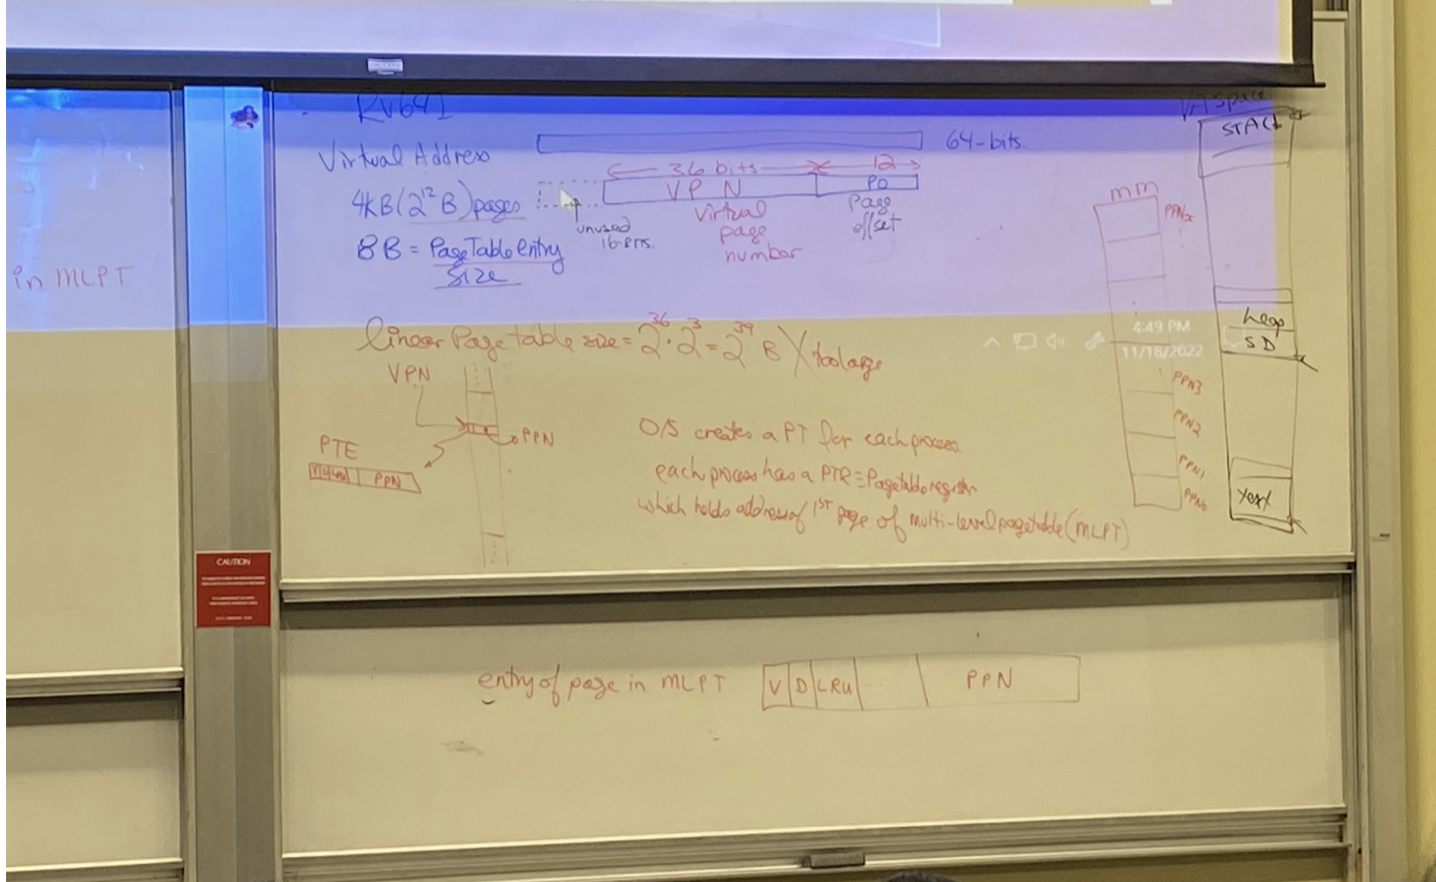 RV64I
Virtual Address
64-bits
36 bits
12
4kB(2^12 B) pages
VPN
PO
unused
16-bits.
virtual
page
number
Page
offset
8B = Page Table Entry
Size
in MLPT
linear Page table size = 2^36 · 2^3 = 2^39 B X too large
VPN
PPN
PTE
PPN
O/S creates a PT for each process
each process has a PTR = Page table register
which holds address of 1ST page of multi-level page table (MLPT)
MM
PPN3
PPN2
PPN1
PPN0
VA Space
STACK
heap
SD
text
4:49 PM
11/18/2022
CAUTION
entry of page in MLPT
V
D
LRU
PPN